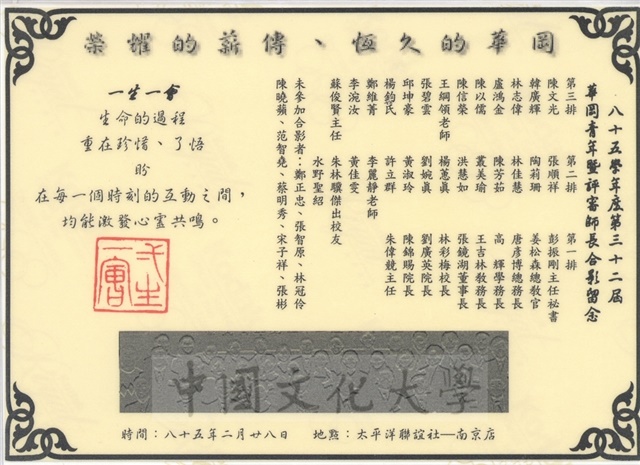 榮耀的薪傳、恆久的華岡
八十五學年度第三十二屆
華岡青年暨評審師長合影留念
第三排 第二排 第一排
陳文光 張順祥 彭振剛主任秘書
韓廣輝 陶莉珊 姜松森總教官
林志偉 林佳慧 唐彥博總務長
盧鴻金 陳芳茹 高 輝學務長
陳以儒 叢美瑜 王吉林教務長
陳信榮 洪慧如 張鏡湖董事長
王綱領老師 楊蕙眞 林彩梅校長
張碧雲 劉婉眞 劉廣英院長
邱坤豪 黃淑玲 陳錦賜院長
楊鈞民 許立群 朱偉競主任
鄭維菁 李麗靜老師
李涴汝 黃佳雯
蘇俊賢主任 朱林驥傑出校友
水野聖紹
未參加合影者：鄭正忠、張智原、林冠伶
陳曉蘋、范智堯、蔡明秀、宋子祥、張彬
一生一會
生命的過程
重在珍惜、了悟
盼
在每一個時刻的互動之間，
均能激發心靈共鳴。
中國文化大學
時間：八十五年二月廿八日 地點：太平洋聯誼社—南京店